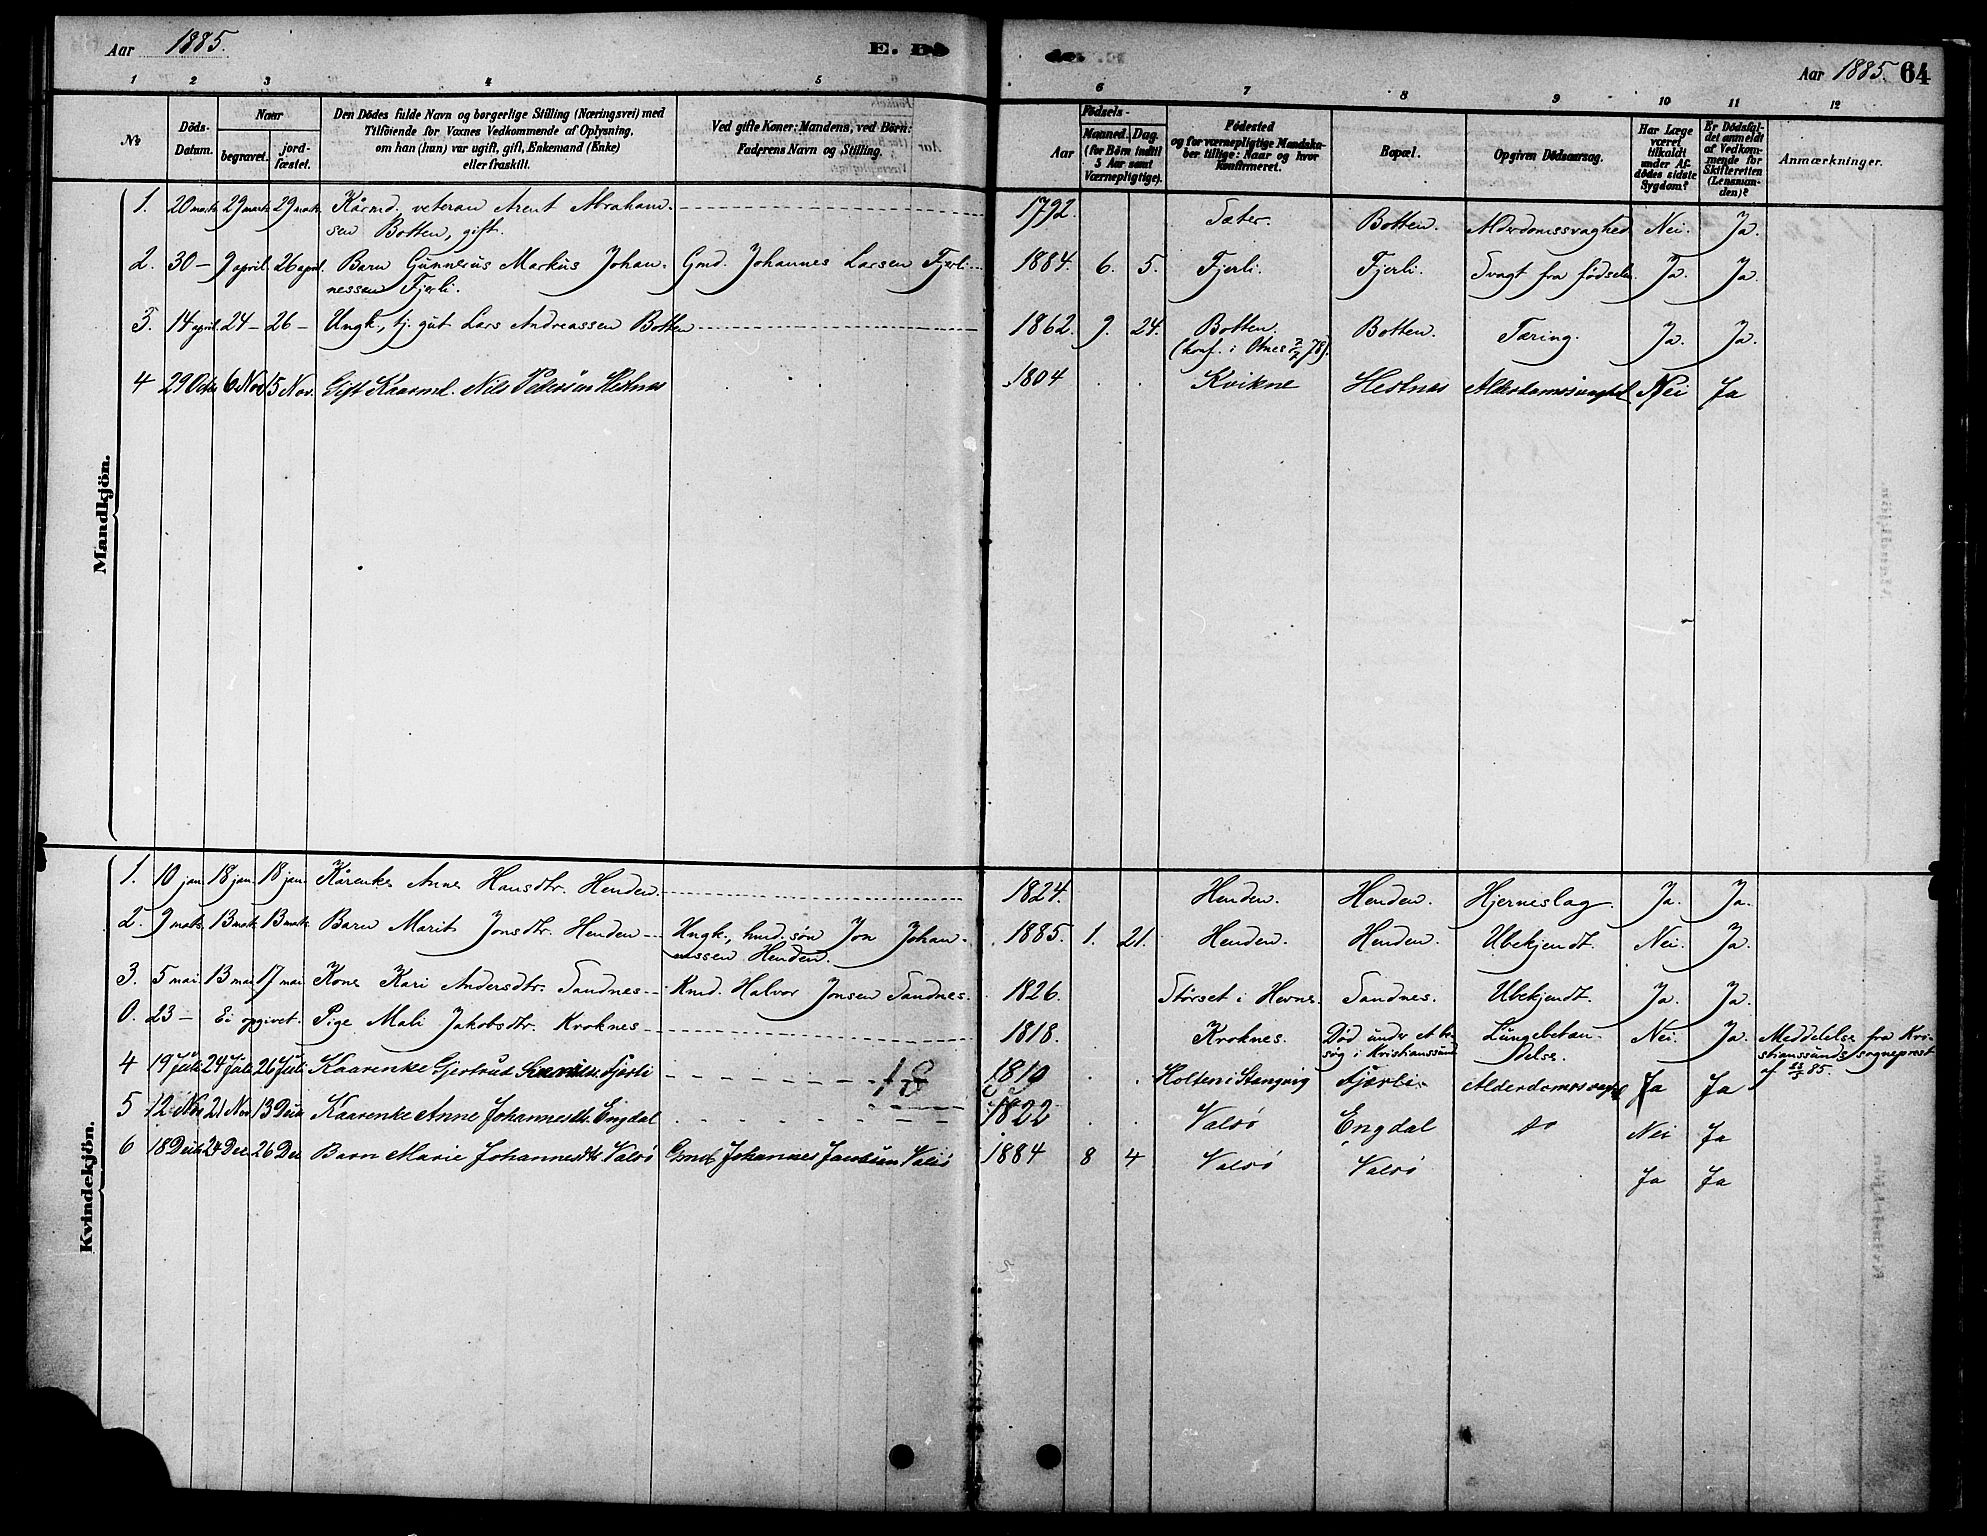 Aar 1885.
E. Dö
de.
Aar 1885. 64
1 2 3 4 5 6 7 8 9 10 11 12
No
Döds-
Datum.
Naar
begravet.
jord-
fæstet.
Den Dödes fulde Navn og borgerlige Stilling (Næringsvei) med
Tilföiende for Voxnes Vedkommende af Oplysning,
om han (hun) var ugift, gift, Enkemand (Enke)
eller fraskilt.
Ved gifte Koner: Mandens, ved Börn:
Faderens Navn og Stilling.
Födsels-
Aar
Maaned. Dag.
(for Börn indtil
5 Aar samt
Værnepligtige).
Födested
og for værnepligtige Mandska-
ber tillige: Naar og hvor
konfirmeret.
Bopæl.
Opgiven Dödsaarsag.
Har Læge
været
tilkaldt
under Af-
dödes sidste
Sygdom?
Er Dödsfal-
det anmeldt
af Vedkom-
mende for
Skifteretten
(Lensman-
den)?
Anmærkninger.
Mandkjön.
1. 20 marts 29 marts 29 marts Kårmd, veteran Arent Abraham- 1792. Sæter. Botten. Alderdomssvaghed Nei. Ja.
sen Botten, gift.
2. 30 — 9 april 26 april Barn Gunnerus Markus Johan- Gmd. Johannes Larsen Fjerli. 1884. 6. 5. Fjerli. Fjerli. Svagt fra fødselen. Ja. Ja.
nessen Fjerli.
3. 14 april 24 — 26 — Ungk., tj. gut Lars Andreassen Botten 1862. 9. 24. Botten. Botten. Tæring. Ja. Ja.
(konf. i Otnes 7/7 78).
4 29 Octr 6 Nov 15 Nov. Gift Kaarmd. Nils Pedersen Hestnes 1804 Kvikne Hestnes Alderdomssvaghed Nei Ja
Kvindekjön.
1. 10 jan. 18 jan. 18 jan. Kårenke Anne Hansdtr. Henden. 1824. Henden. Henden. Hjerneslag. Ja. Ja.
2. 9 marts 13 marts 13 marts Barn Marit Jonsdtr. Henden Ungk., hmd. søn Jon Johan- 1885. 1. 21. Henden. Henden. Ubekjendt. Nei. Ja.
nessen Henden.
3. 5 mai 13 mai 17 mai Kone Kari Andersdtr. Sandnes Kmd. Halvor Jonsen Sandnes. 1826. Størset i Hevne. Sandnes. Ubekjendt. Ja. Ja.
0. 23 — Ei opgivet. Pige Mali Jakobsdtr. Kroknes 1818. Kroknes. Død under et be- Lungebetæn- Nei. Ja. Meddelelse fra Kri-
søg i Kristianssund delse. stianssunds sogneprest
af 85.
4 19 Juli 24 Juli 26 Juli Kaarenke Gjertrud Fjerli 18 1819 Holten i Stangvig Fjærli Alderdomssvagh. Ja Ja
5 12 Nov 21 Nov 13 Decbr Kaarenke Anne Johannesdtr. Engdal 1822 Valsø Engdal do Nei Ja
6 18 Decbr 24 Dec 26 Dec Barn Marie Johannesdtr Valsø Gmd Johannes Jansen Valsø 1884 8 4 Valsø Valsø Ja Ja